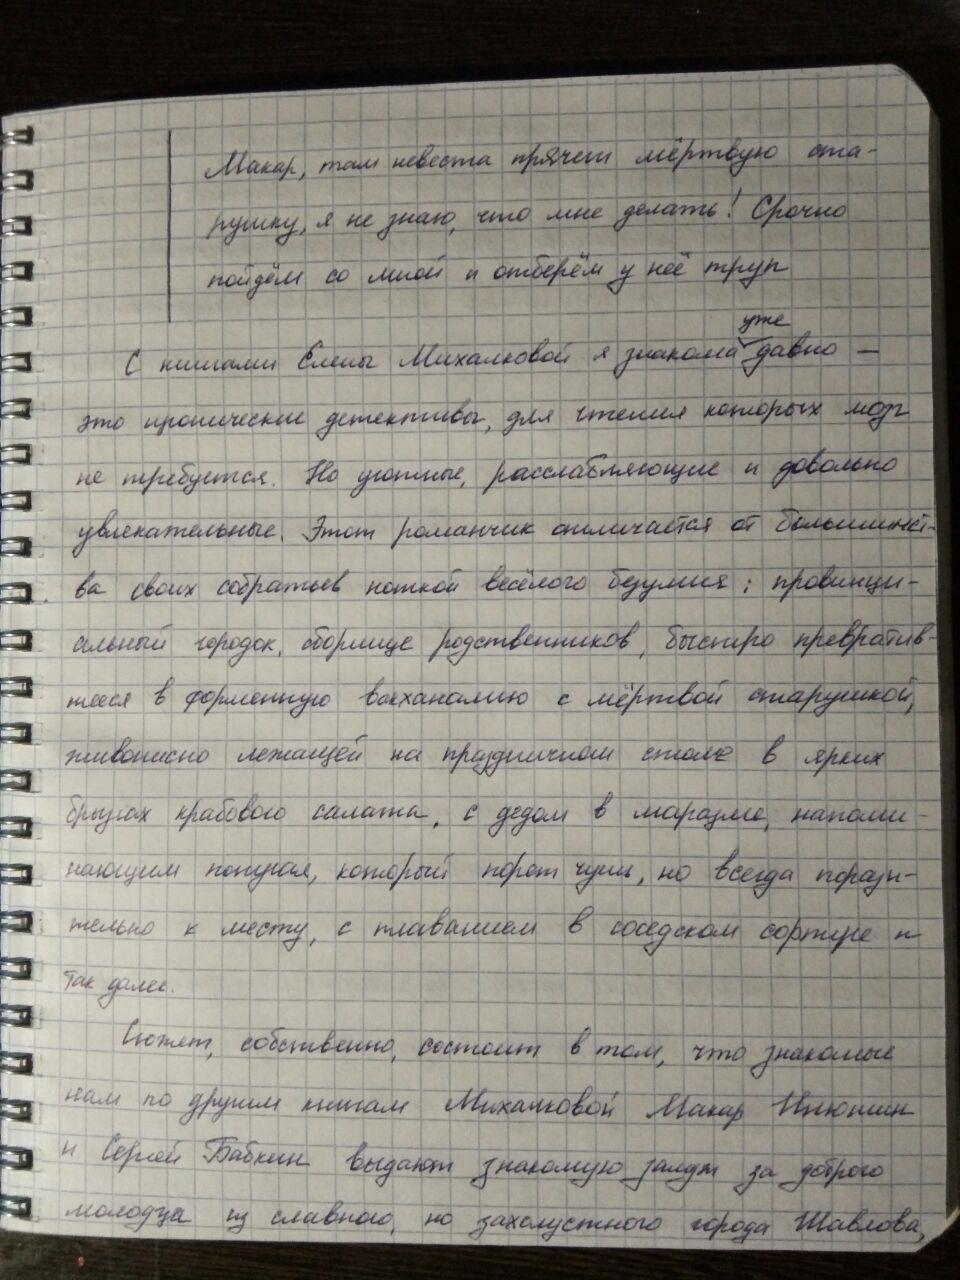 Макар, там невеста прячет мёртвую ста-
рушку, я не знаю, что мне делать! Срочно
пойдём со мной и отберём у неё труп
уже
С книгами Елены Михалковой я знакома давно —
это иронические детективы, для чтения которых мозг
не требуется. Но уютные, расслабляющие и довольно
увлекательные. Этот романчик отличается от большинст-
ва своих собратьев ноткой весёлого безумия: провинци-
альный городок, сборище родственников, быстро превратив-
шееся в форменную вакханалию с мёртвой старушкой,
живописно лежащей на праздничном столе в ярких
брызгах крабового салата, с дедом в маразме, напоми-
нающим попугая, который порет чушь, но всегда порази-
тельно к месту, с плаванием в соседском сортире и
так далее.
Сюжет, собственно, состоит в том, что знакомые
нам по другим книгам Михалковой Макар Илюшин
и Сергей Бабкин выдают знакомую замуж за доброго
молодца из славного, но захолустного города Шавлова,